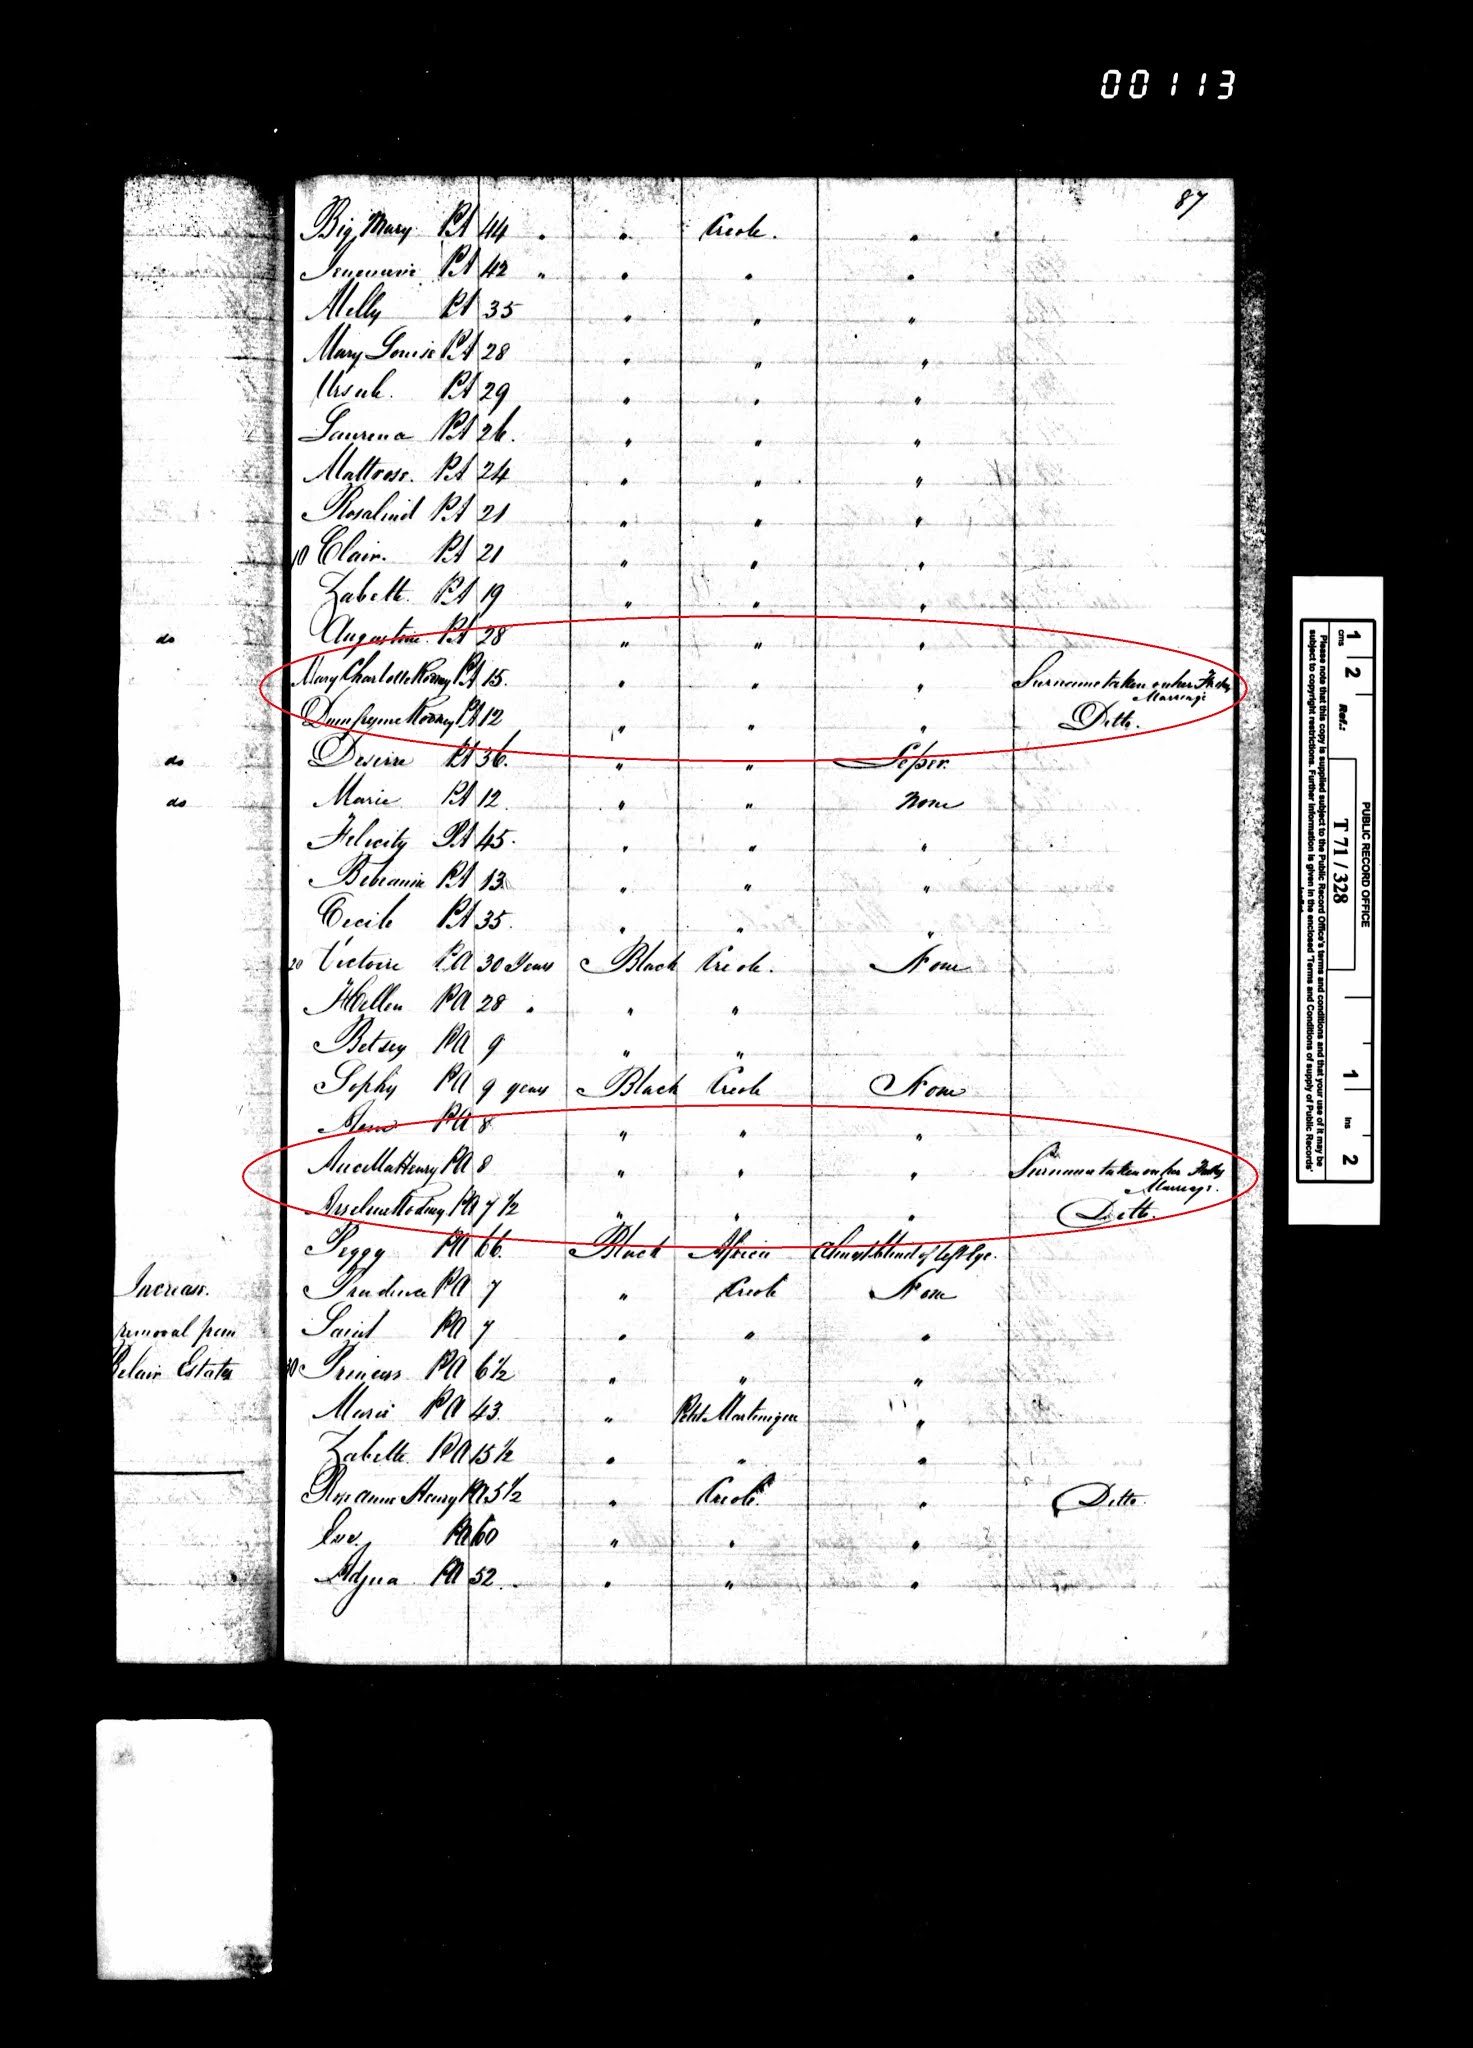 00113
87
Big Mary PA 44 " " Creole. "
PA 42 " " " "
Melly PA 35 " " "
Mary Louise PA 28 " " "
Ursule. PA 29 " " "
Laurena PA 26. " " "
Mattrose. PA 24 " " "
Rosalind PA 21 " " "
10 Clair. PA 21 " " "
Zabette. PA 19 " " "
do Augustine PA 28 " " "
Mary Charlotte Rodney PA 15. " " " Surname taken on her Marriage
Rodney PA 12 " " " Ditto.
do Desiree PA 36. " "
do Marie PA 12 " " None
Felicity PA 45. " " "
PA 13 " " "
Cecile PA 35. " " "
20 Victoire PA 30 Years Black Creole. None
Hellen PA 28 " " "
Betsey PA 9 " "
Sophy PA 9 years Black Creole None
PA 8 " " "
Henry PA 8 " " " Surname taken on her Marriage.
Rodney PA 7 ½ " " " Ditto.
Peggy PA 66. Black Africa Almost blind of left Eye.
Increase. Prudence PA 7 " Creole None
removal from PA 7 " " "
Belair Estates 30 Princess PA 6½ " " "
Marie PA 43. " Petit Martinique "
Zabette PA 15 ½ " " "
Rose anne Henry PA 5½ " Creole. " Ditto.
Eve. PA 60 " " "
Adjua PA 52. " " "
1 2 1 2
cms Ref.: ins
PUBLIC RECORD OFFICE
T 71 / 328
Please note that this copy is supplied subject to the Public Record Office's terms and conditions and that your use of it may be
subject to copyright restrictions. Further information is given in the enclosed 'Terms and Conditions of supply of Public Records'